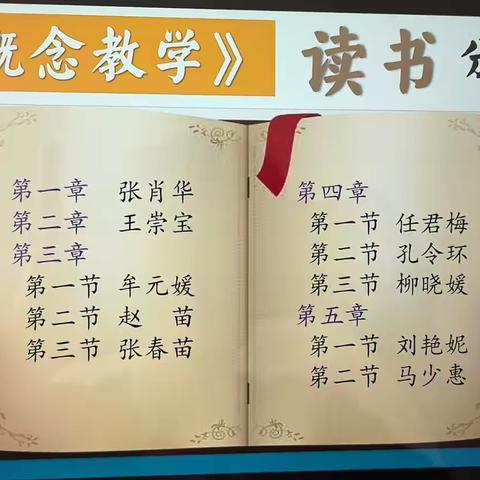 概念教学》 读书分
第一章 张肖华
第二章 王崇宝
第三章
第一节 牟元媛
第二节 赵 苗
第三节 张春苗
第四章
第一节 任君梅
第二节 孔令环
第三节 柳晓媛
第五章
第一节 刘艳妮
第二节 马少惠